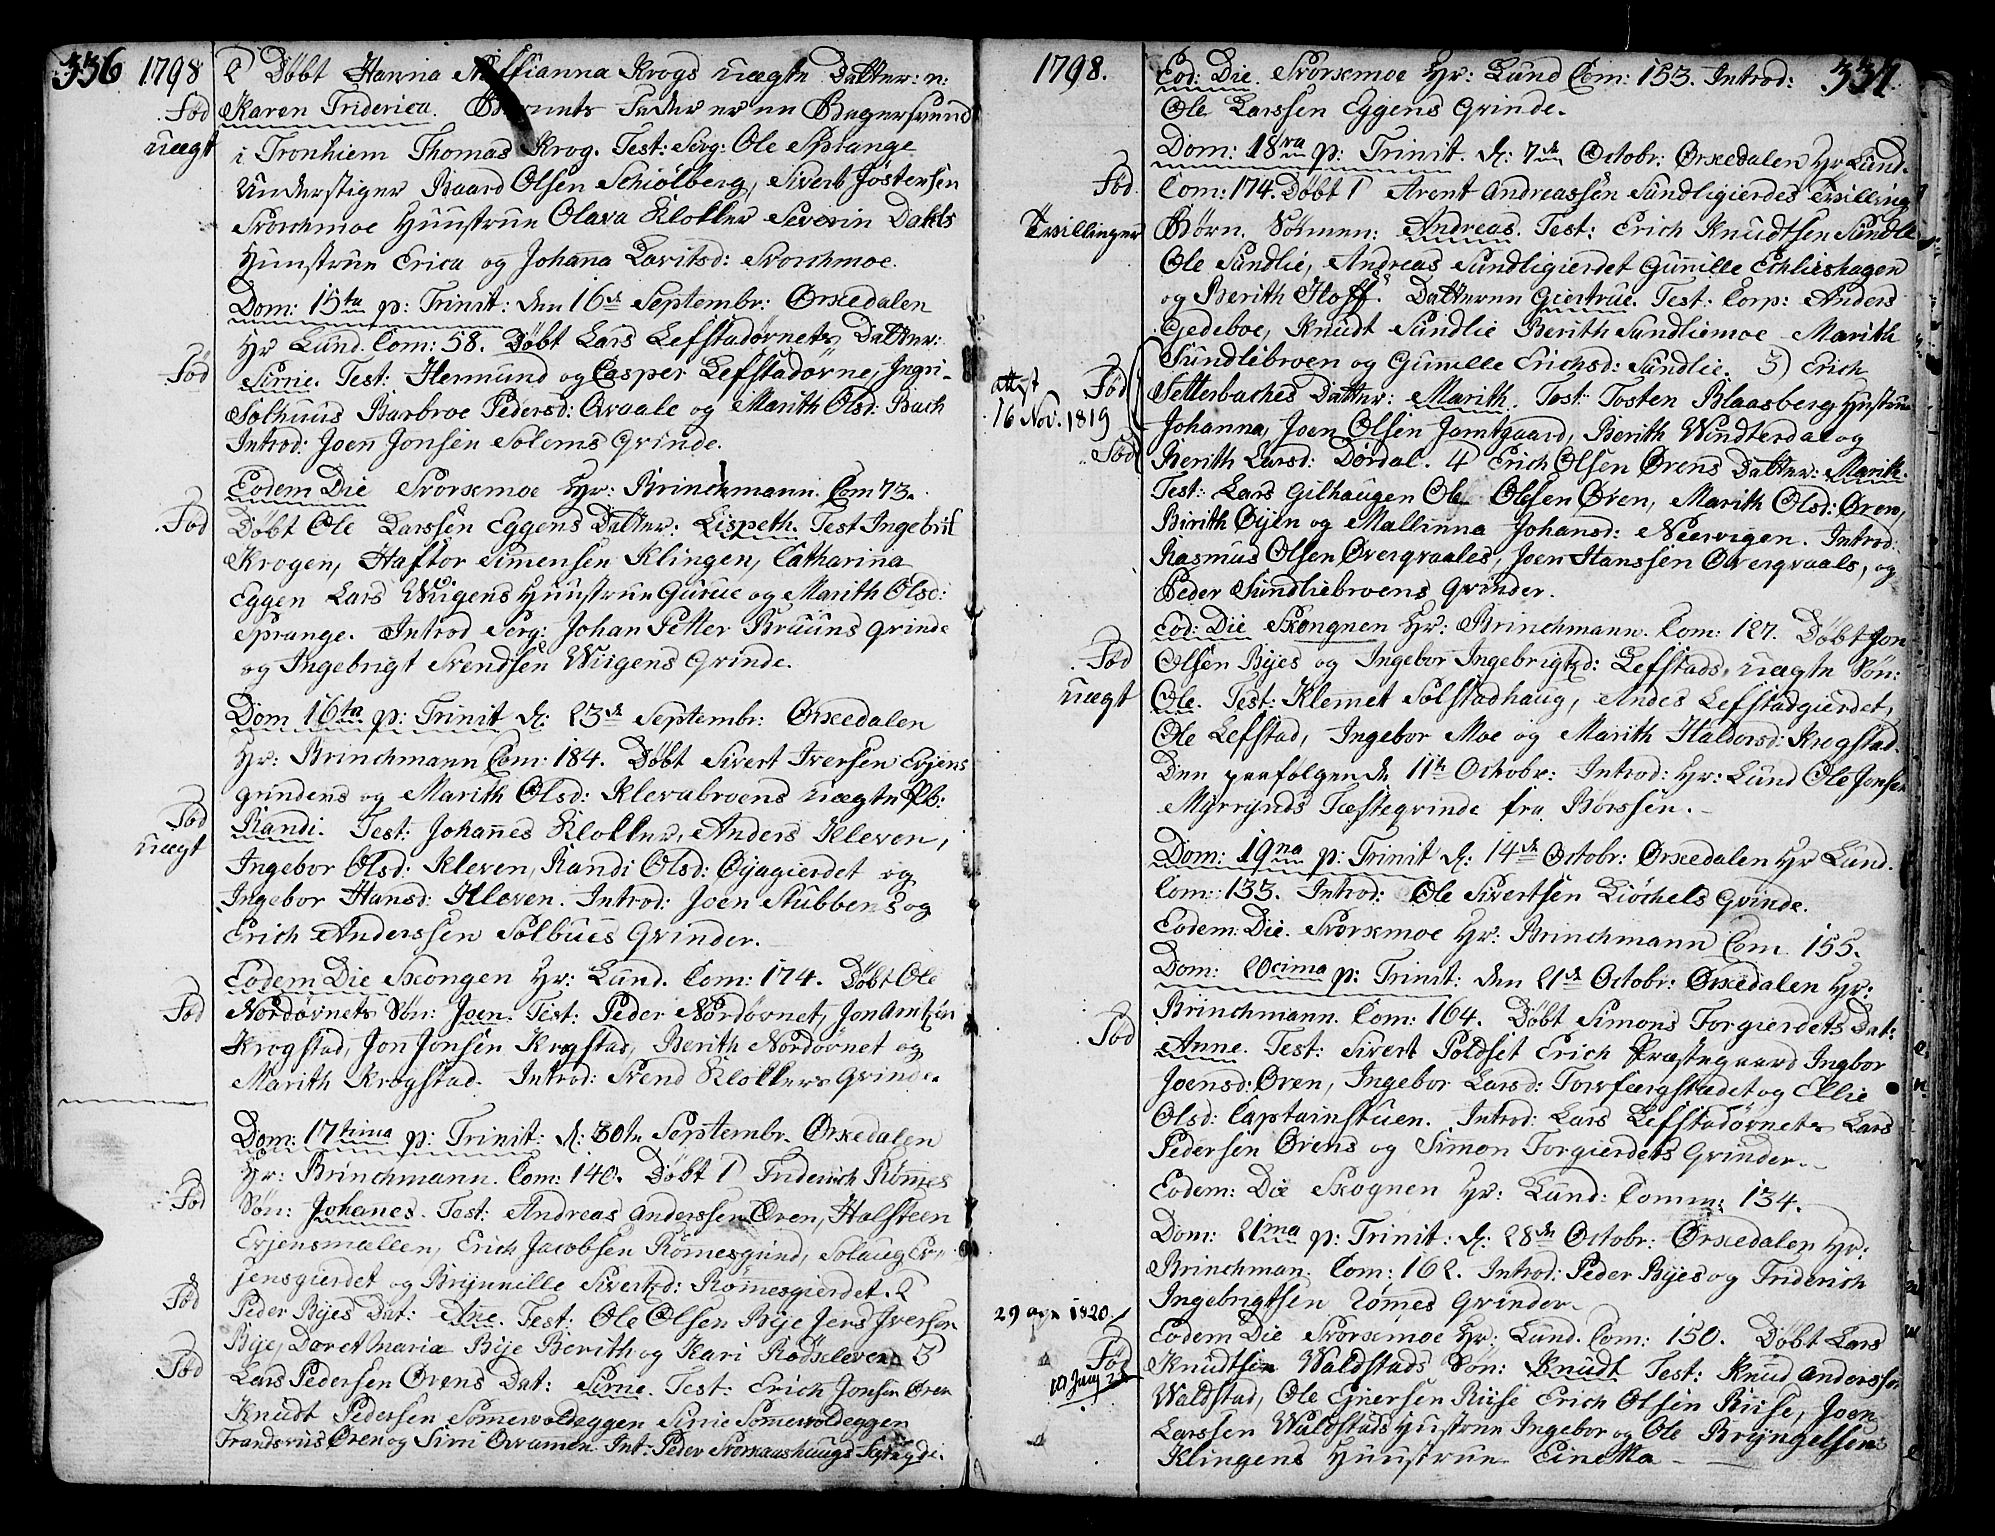 336 1798
2 Døbt Hanna Steffianna Krogs uægte Datter: n:
Fød
Karen Friderica. Barnets Fader er en Bagersvend
uægt
i Tronhiem Thomas Krog. Test: Serg: Ole Sprange
Understiger Baard Olsen Schiølberg, Sivert Jøstensen
Svorchmoe Huustrue Olava Klokker Severin Dahls
Huustrue Erica og Johana Lavitsd: Svorchmoe.
Dom: 15ta p: Trinit: den 16de Septembr: Ørkedalen
Hr Lund. Com: 58. Døbt Lars Lefstadørnets Datter:
Fød
Sirnie. Test: Hermund og Casper Lefstadørne, Ingri-
Solhuus Barbroe Pedersd: Qvaale og Marith Olsd: Bach
Introd: Joen Jonsen Solems Qvinde.
Eodem Die Svorkmoe Hr: Brinchmann. Com 73.
Fød
Døbt Ole Larssen Eggens Datter: Lispeth. Test Ingebrit
Krogen, Haftor Simensen Klingen, Catharina
Eggen Lars Wuigens Huustrue Gurue og Marith Olsd:
Sprange. Introd Serg: Johan Petter Bruuns qvinde
og Ingebrigt Svendsen Wuigens Qvinde.
Dom 16ta p: Trinit d: 23de Septembr: Ørkedalen
Hr: Brinchmann Com: 184. Døbt Sivert Iversen Evjens
grindens og Marith Olsd: Klevabroens uægte Pb:
Fød
Randi. Test: Johannes Klokker, Anders Kleven,
uægt
Ingebor Olsd: Kleven, Randi Olsd: Øyagierdet og
Ingebor Hansd: Kleven. Introd: Joen Stubbens og
Erich Anderssen Solbues Qvinder.
Eodem Die Skongen Hr: Lund. Com: 174. Døbt Ole
Fød
Nordørnets Søn: Joen. Test: Peder Nordørnet, Jon Arntsen
Krogstad, Jon Jonsen Krogstad, Berith Nordørnet og
Marith Krogstad. Introd: Svend Klokkers Qvinde.
Dom: 17tima p: Trinit: d: 30te Septembr. Ørkedalen
Hr: Brinchmann. Com: 140. Døbt 1 Friderich Rømmes
Fød
Søn: Johanes. Test: Andreas Anderssen Øren, Halsteen
Evjensmællen, Erich Jacobsen Rømmesgrind, Solaug Ev-
jensgierdet og Brynnille Sivertsd: Rømmesgierdet. 2
Fød
Peder Byes Dat: Ane. Test: Ole Olsen Bye Jens Iversen
Bye, Doret Maria Bye Berith og Kari Rødskleven 3
Fød
Lars Pedersen Ørens Dat: Sirne. Test: Erich Jonsen Øren
Knudt Pedersen Somervoldeggen Sirie Somervoldeggen
Trands Øren og Siri Qvamen. Int: Peder

1798.
337.
Eod: Die. Svorkmoe Hr: Lund Com: 153. Introd:
Ole Larssen Eggens Qvinde.
Dom: 18va p: Trinit. d: 7de Octobr: Ørkedalen Hr Lund.
Fød
Com: 174. Døbt 1 Arent Andreassen Sundligierdes Tvilling
Tvillinger
Børn. Sønnen: Andreas. Test: Erich Knudtsen Sundlie
Ole Sundlie, Andreas Sundligierdet Gunille Echlieshagen
og Berith Hoff. Datteren Giertrue. Test: Corp: Anders
Gedeboe, Knudt Sundlie Berith Sundliemoe Marith
Sundlibroen og Gunille Erichsd: Sundlie. 3) Erich
attest
Fød
Setterbaches Datter: Marith. Test: Tosten Blaasberg Hustrue
16 Nov. 1819
Johanna, Joen Olsen Jamtgaard, Berith Windterdal og
Fød
Berith Larsd: Dordal. 4 Erich Olsen Ørens Datter: Marith.
Test: Lars Gilhaugen Ole Olesen Øren, Marith Olsd: Øren,
Birith Øyen og Mallinna Johansd: Neervigen. Introd:
Rasmus Olsen Overqvaales, Joen Hanssen Overqvaals, og
Peder Sundliebroens qvinder.
Eod: Die Skongnen Hr: Brinchmann. Com: 127. Døbt Jon
Fød
Olsen Byes og Ingebor Ingebrigtsd: Lefstads uægte Søn:
uægt
Ole. Test: Klemet Solstadhaug, Andes Lefstadgierdet,
Ole Lefstad, Ingebor Moe og Marith Haldorsd: Krogstad.
Den paafølgende 11te Octobr: Introd: Hr: Lund Ole Jonsen
Myrrynds Fæsteqvinde fra Børssen.
Dom: 19na p: Trinit d: 14de Octobr: Ørkedalen Hr Lund.
Com: 133. Introd: Ole Sivertsen Liøchels Qvinde.
Eodem: Die. Svorkmoe Hr: Brinchmann Com 155.
Dom: 20cima p: Trinit: den 21de Octobr: Ørkedalen Hr:
Brinchmann. Com: 164. Døbt Simons Forgierdets Dat:
Fød
Anne. Test: Sivert Poldset Erich Præstegaard Ingbor
Joensd: Øren, Ingebor Larsd: Torvfærgstadet og Ellie
Olsd: Captainstuen. Introd: Lars Lefstadørnets Lars
Pedersen Ørens og Simon Forgierdets Qvinder.
Eodem: Die Skognen Hr: Lund: Comm: 134.
Dom: 21ima p: Trinit: d: 28de Octobr: Ørkedalen Hr:
Brinchman. Com: 162. Introd: Peder Byes og Friderich
Ingebrigtsen Rømes Qvinder.
29 1820
Eodem Die Svorkmoe Hr: Lund. Com: 150. Døbt Lars
Fød
Knudtsen Waldstads Søn: Knudt Test: Knud Anderssen
Waldstad, Ole Enersen Riise Erich Olsen Riise, Joen
Larssen Waldstads Hustrue Ingebor og Ole Bryngelsens
Klingens Huustrue Einetta